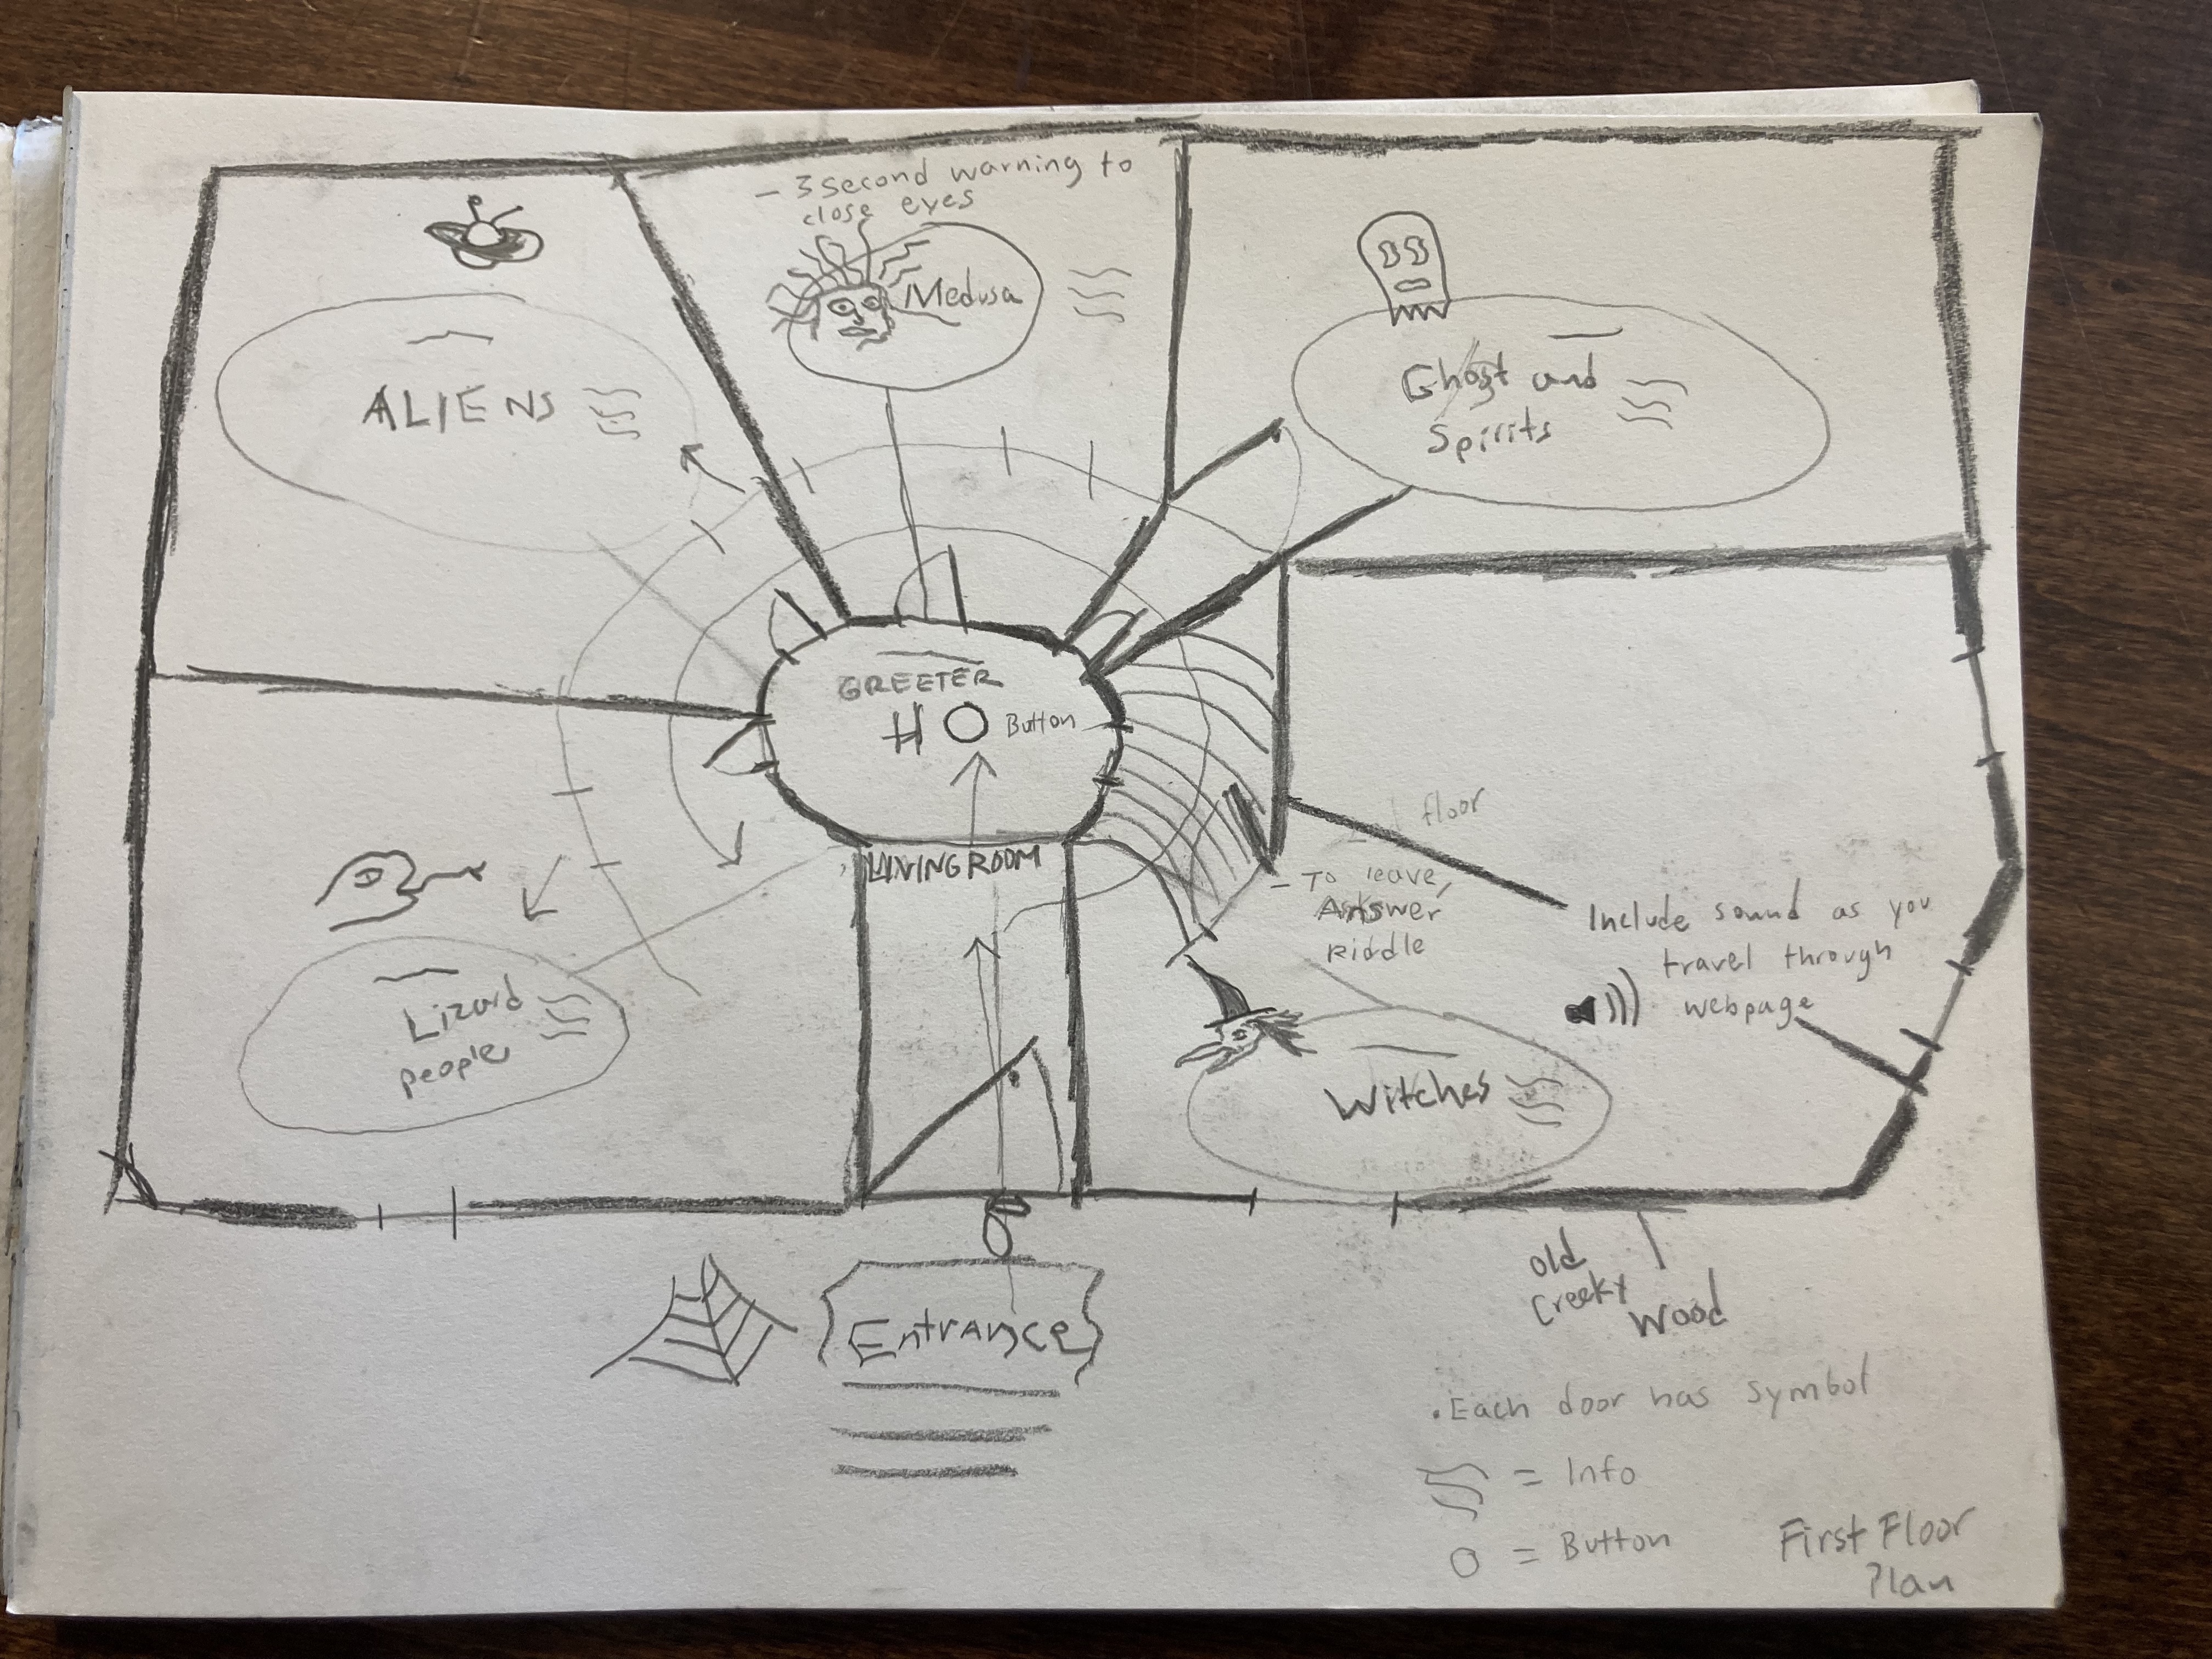 - 3 second warning to
close eyes
Medusa
ALIENS
Ghost and
Spirits
GREETER
Button
LIVING ROOM
floor
- To leave,
Answer
Riddle
Include sound as you
travel through
webpage
Lizard
people
Witches
Entrance
Old
Creeky
Wood
• Each door has symbol
= Info
O = Button
First Floor
Plan